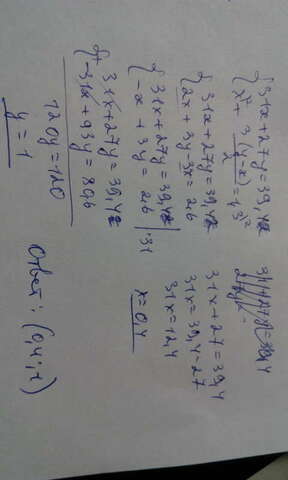 {31x+27y=39,4
x² + 3(y-x)/2 = 1,3²
{31x+27y=39,4
2x+3y-3x=2,6
{31x+27y=39,4
-x+3y=2,6 |·31
+{31x+27y=39,4
-31x+93y=80,6
120y=120
y=1
31x+27=39,4
31x=39,4-27
31x=12,4
x=0,4
Ответ: (0,4;1)